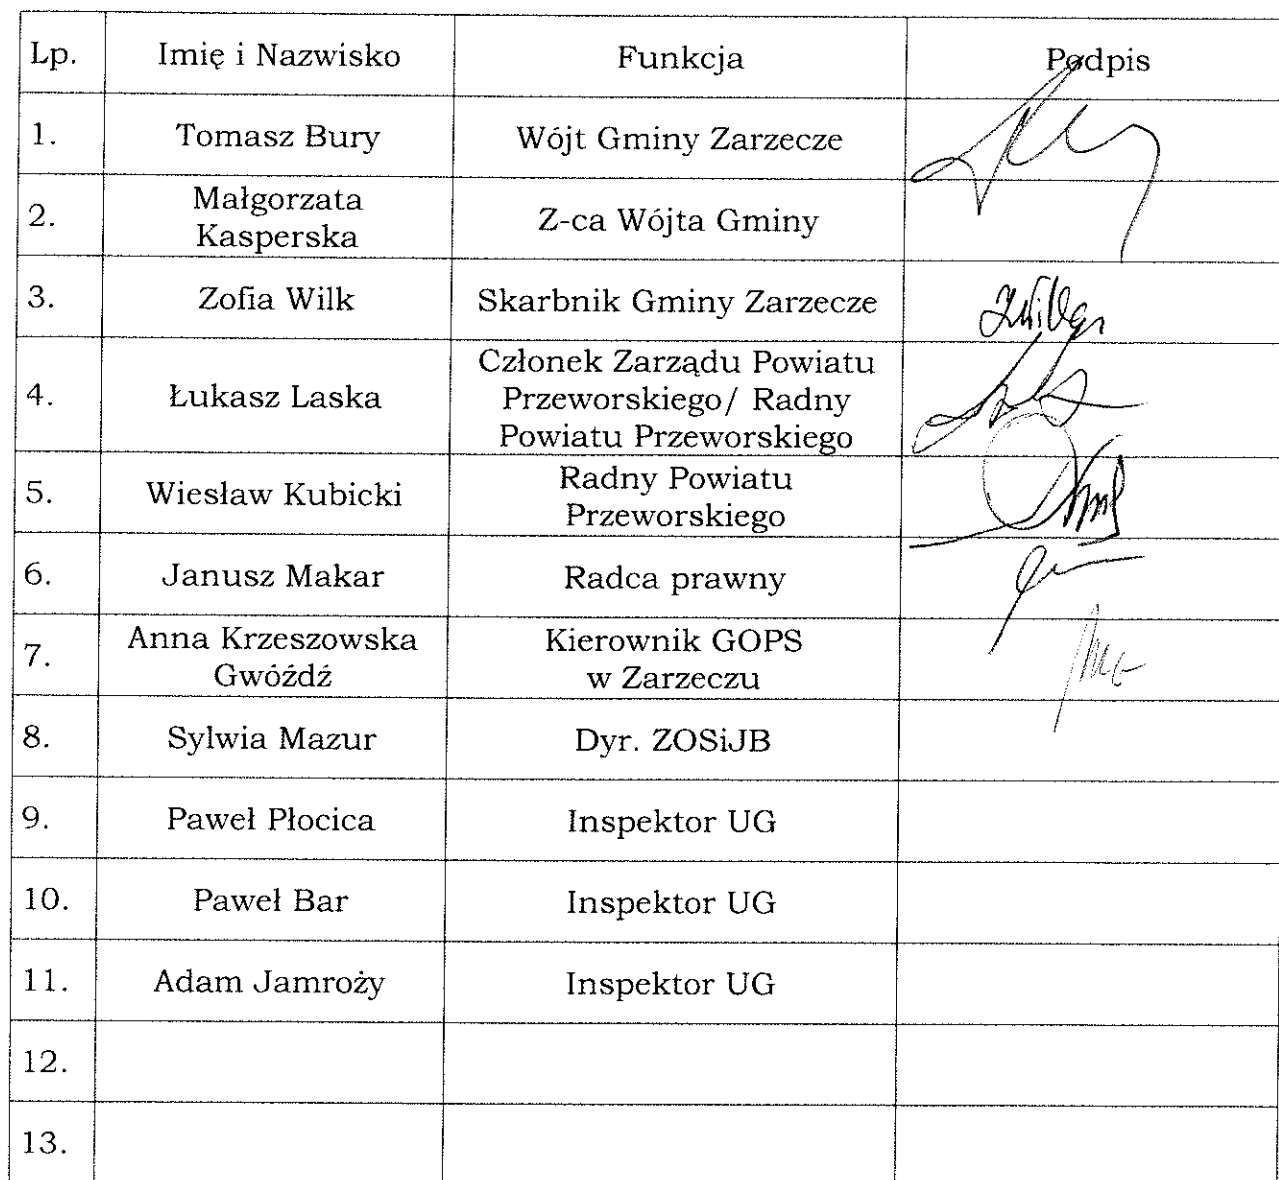 Lp. Imię i Nazwisko Funkcja Podpis
1. Tomasz Bury Wójt Gminy Zarzecze
2. Małgorzata
Kasperska Z-ca Wójta Gminy
3. Zofia Wilk Skarbnik Gminy Zarzecze
4. Łukasz Laska Członek Zarządu Powiatu
Przeworskiego/ Radny
Powiatu Przeworskiego
5. Wiesław Kubicki Radny Powiatu
Przeworskiego
6. Janusz Makar Radca prawny
7. Anna Krzeszowska
Gwóźdź Kierownik GOPS
w Zarzeczu
8. Sylwia Mazur Dyr. ZOSiJB
9. Paweł Płocica Inspektor UG
10. Paweł Bar Inspektor UG
11. Adam Jamroży Inspektor UG
12.
13.